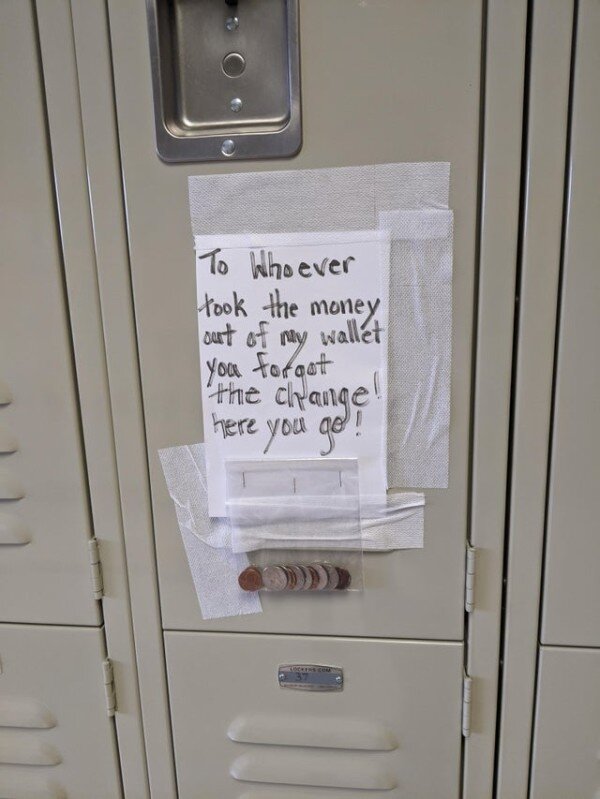 To Whoever
took the money
out of my wallet
you forgot
the change!
here you go!
LOCKERS.COM
37